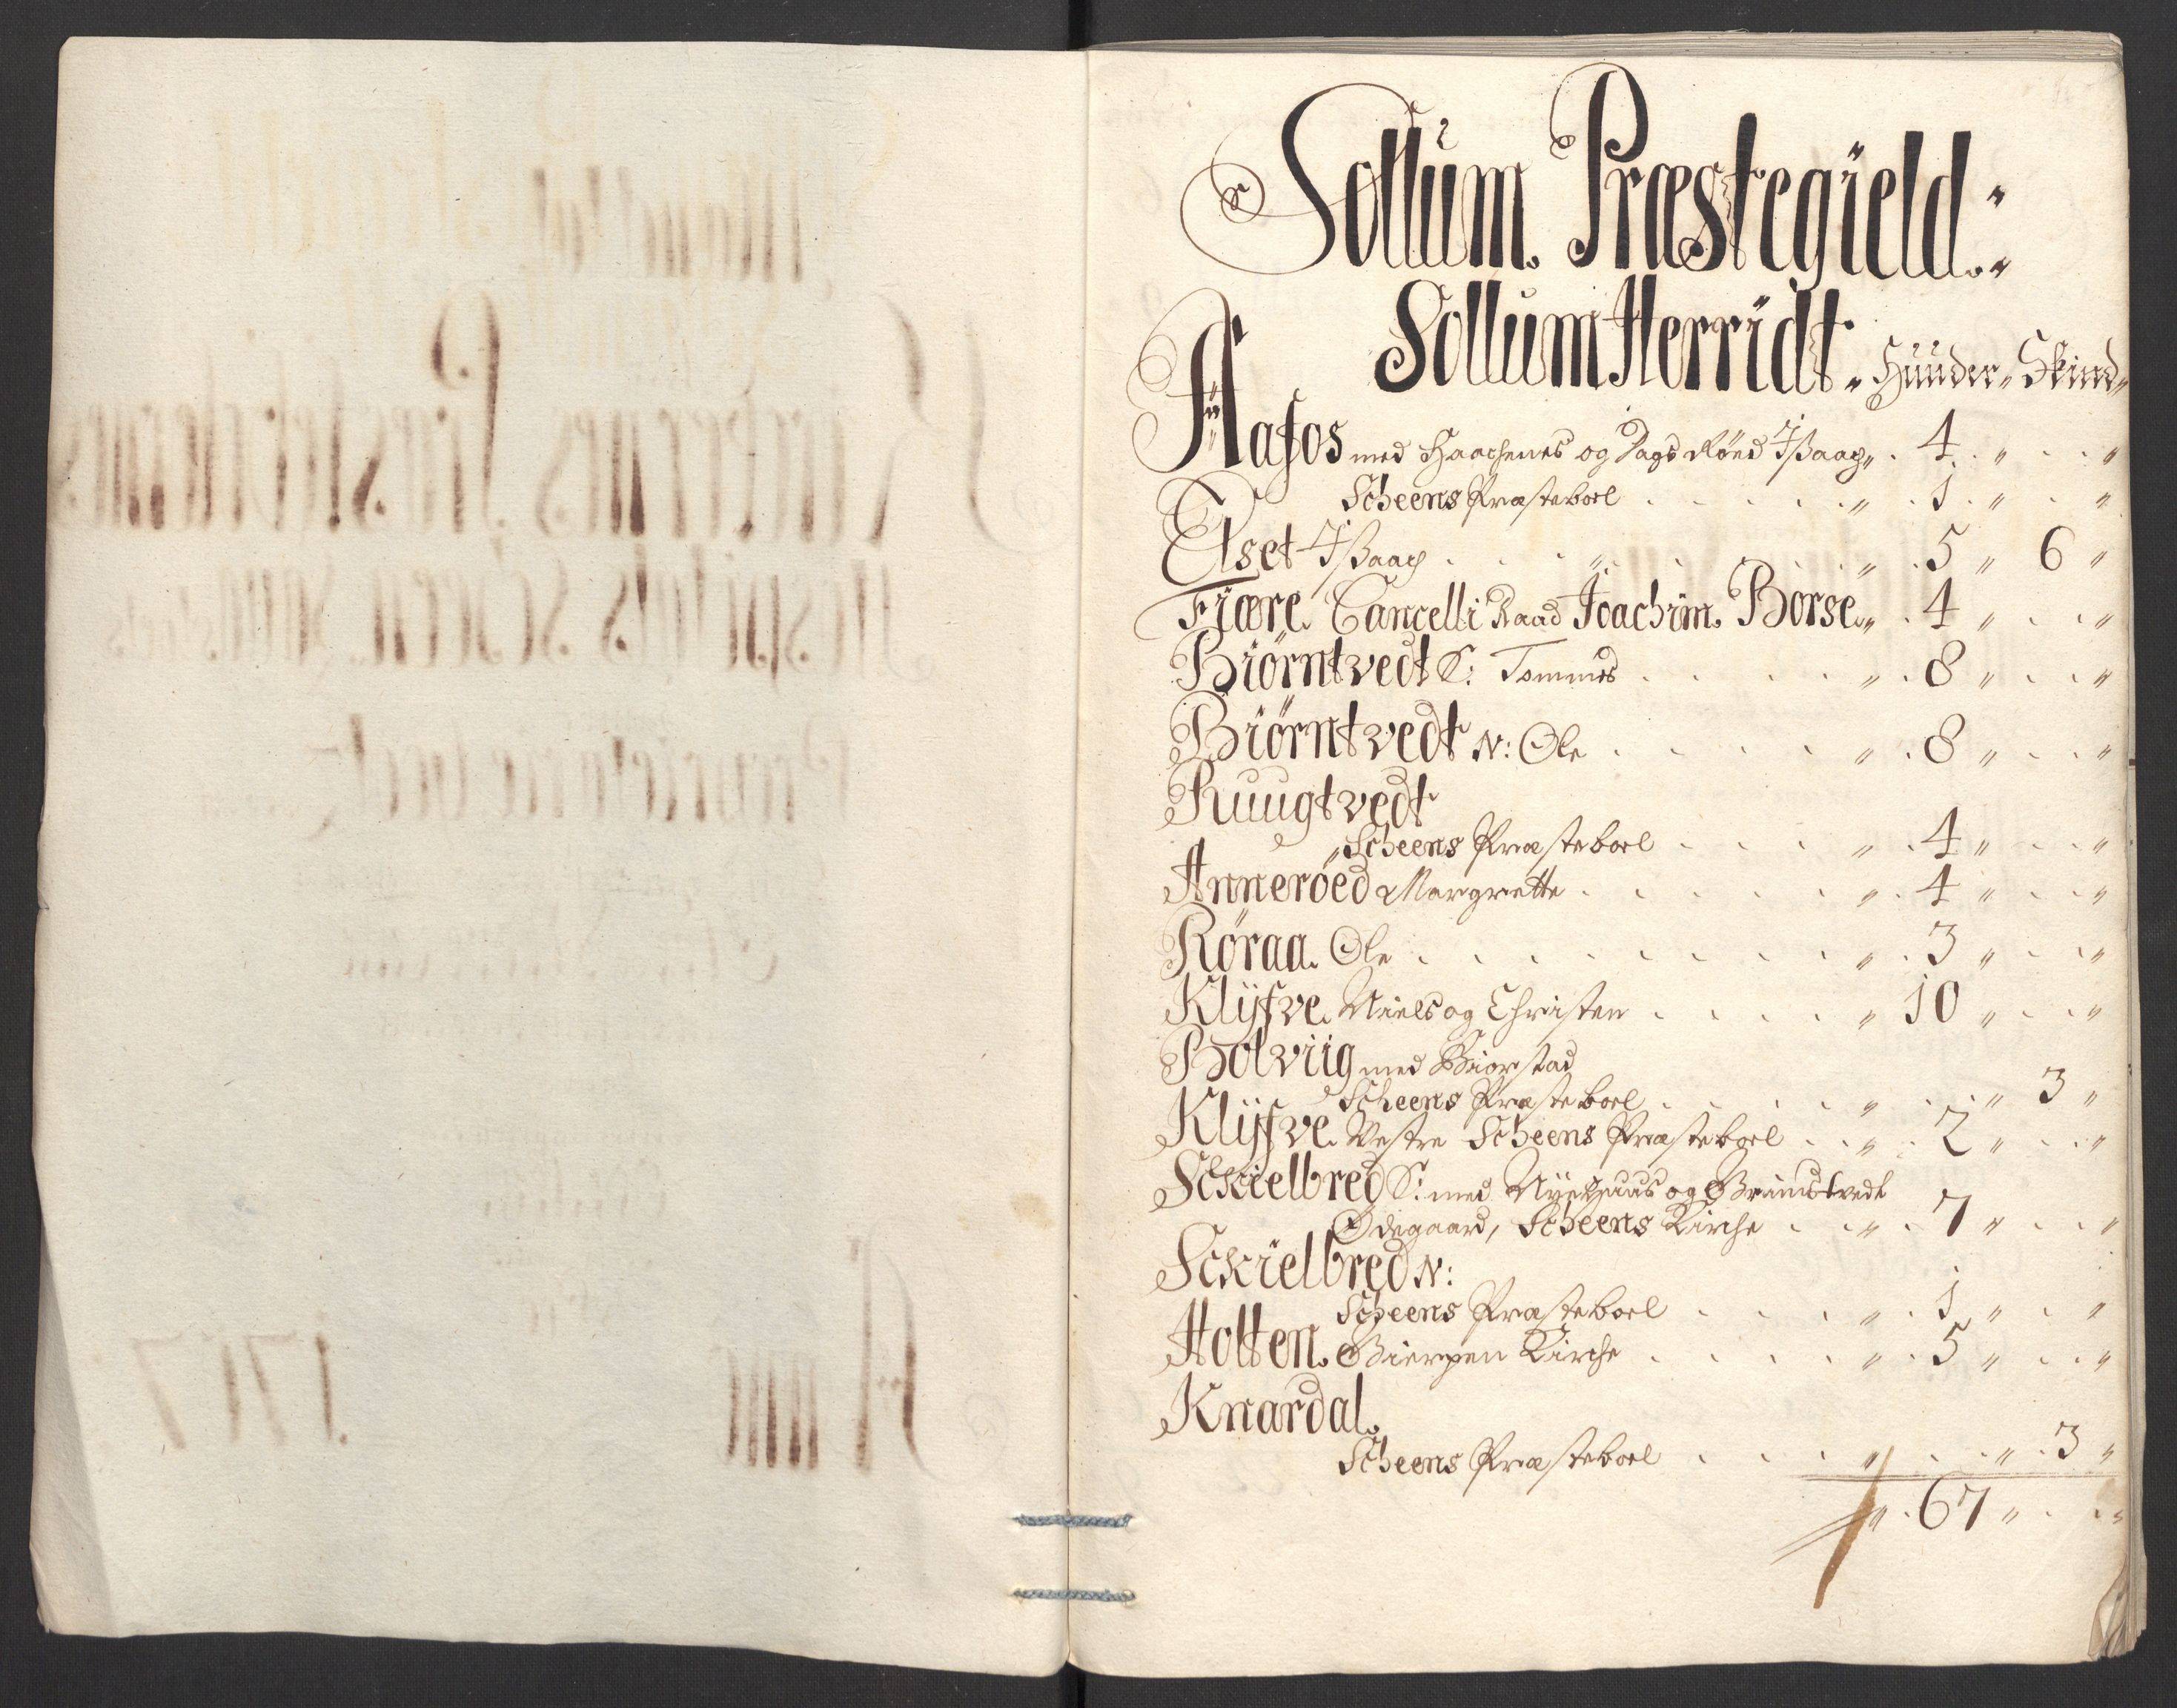 Sollum. Præstegield.
Sollum Herridt. Huuder. Skind
Aafos med Haachenes og Dags Røed Jssaach 4
Scheens Præsteboel 1
Elset Jssaach 5 6
Fiære. Cancelli Raad Joachim. Borse. 4
Biørntvedt S: Tommes 8
Biørntvedt N: Ole 8
Ruugtvedt
Scheens Præsteboel 4
Annerøed Margrette 4
Røraa. Ole 3
Klÿfve. Niels og Christen 10
Bolviig med Biorstad
Scheens Præsteboel 3
Klÿfve. Vestre Scheens Præsteboel 2
Sckielbred S: med Nÿehuus og Grimstvedt
Ødegaard, Scheens Kirche 7
Sckielbred N:
Scheens Præsteboel 1
Holten. Gierpen Kirche 5
Knardal.
Scheens Præsteboel 3
67